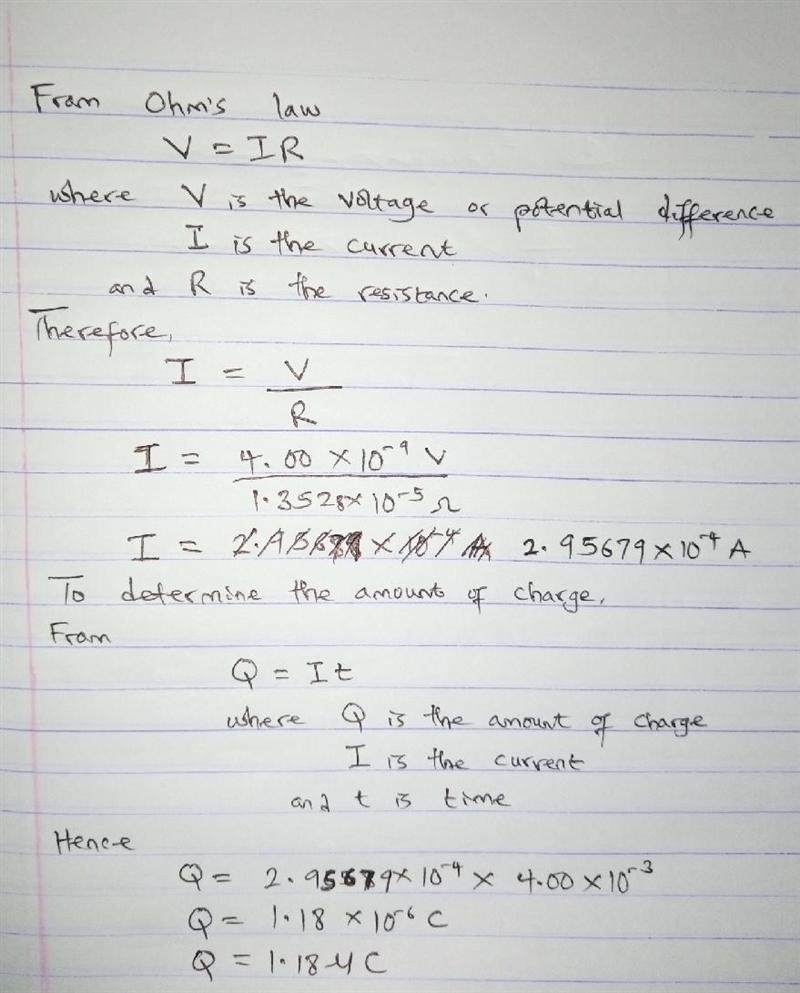 From Ohm's law
V = IR
where V is the voltage or potential difference
I is the current
and R is the resistance.
Therefore,
I = V
R
I = 4.00 × 10⁻⁹ V
1.3528 × 10⁻⁵ Ω
I = 2.95679 × 10⁻⁴ A
To determine the amount of charge,
From
Q = It
where Q is the amount of charge
I is the current
and t is time
Hence
Q = 2.95679 × 10⁻⁴ × 4.00 × 10⁻³
Q = 1.18 × 10⁻⁶ C
Q = 1.18 μC